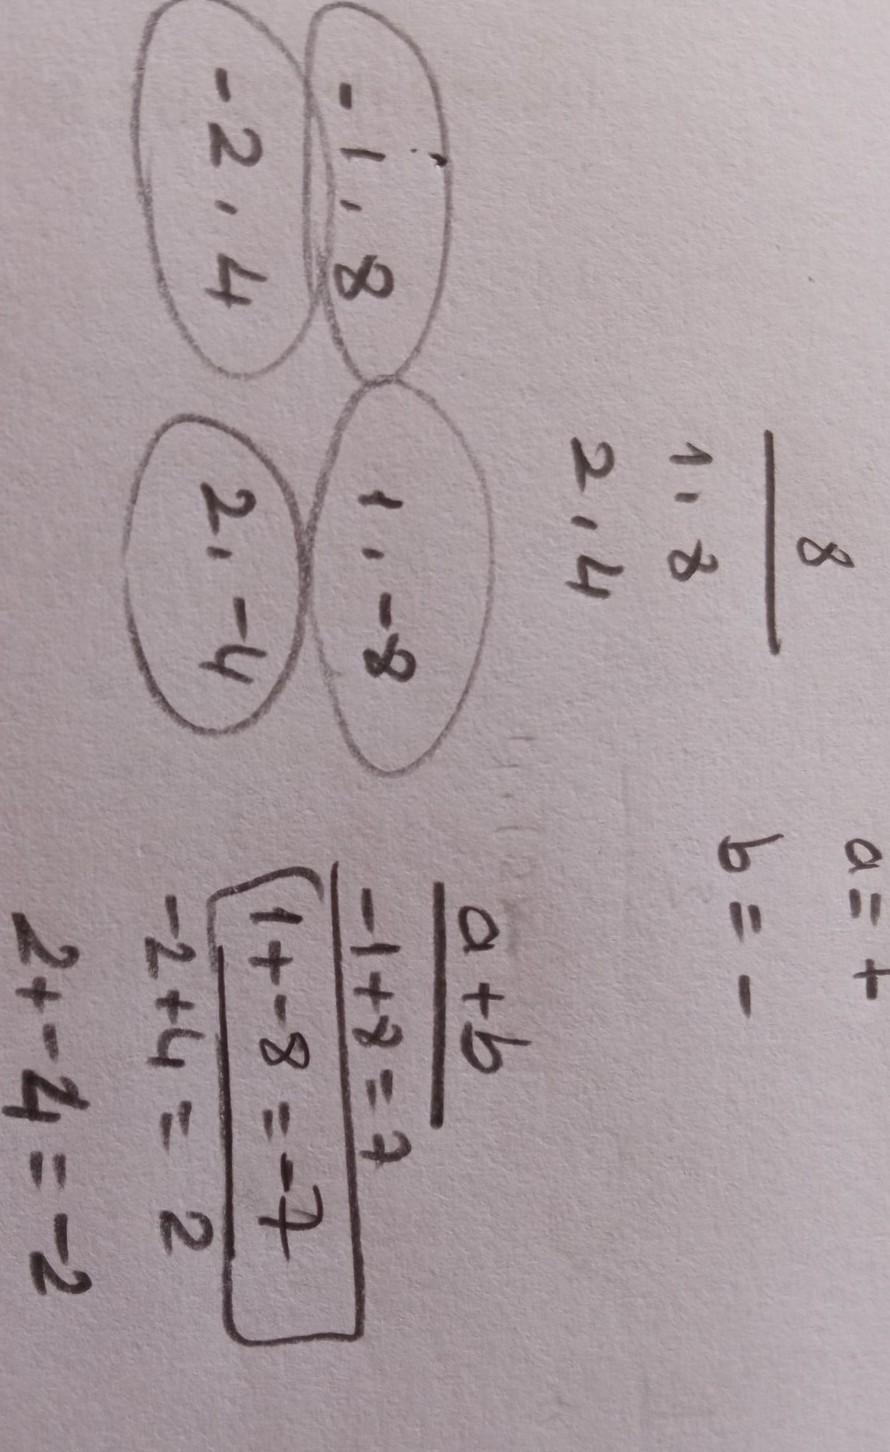 a = +
8
b = -
1, 8
2, 4
a+b
-1, 8
1, -8
-1+8=7
-2, 4
2, -4
1+-8=-7
-2+4=2
2+-4=-2